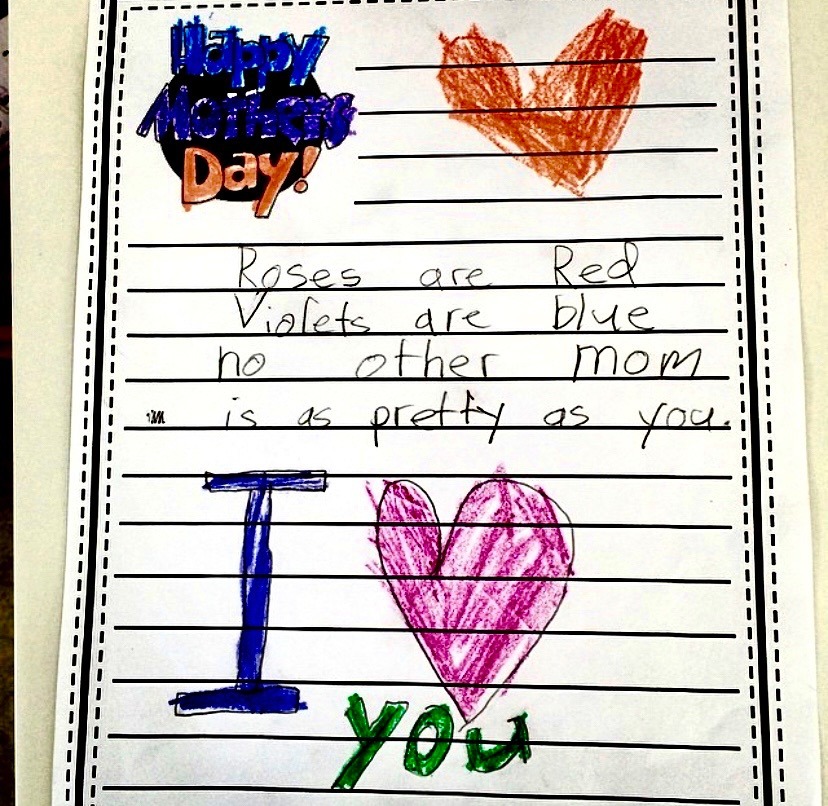 Happy
Mothers
Day!
Roses are Red
Violets are blue
no other mom
is as pretty as you.
I
you